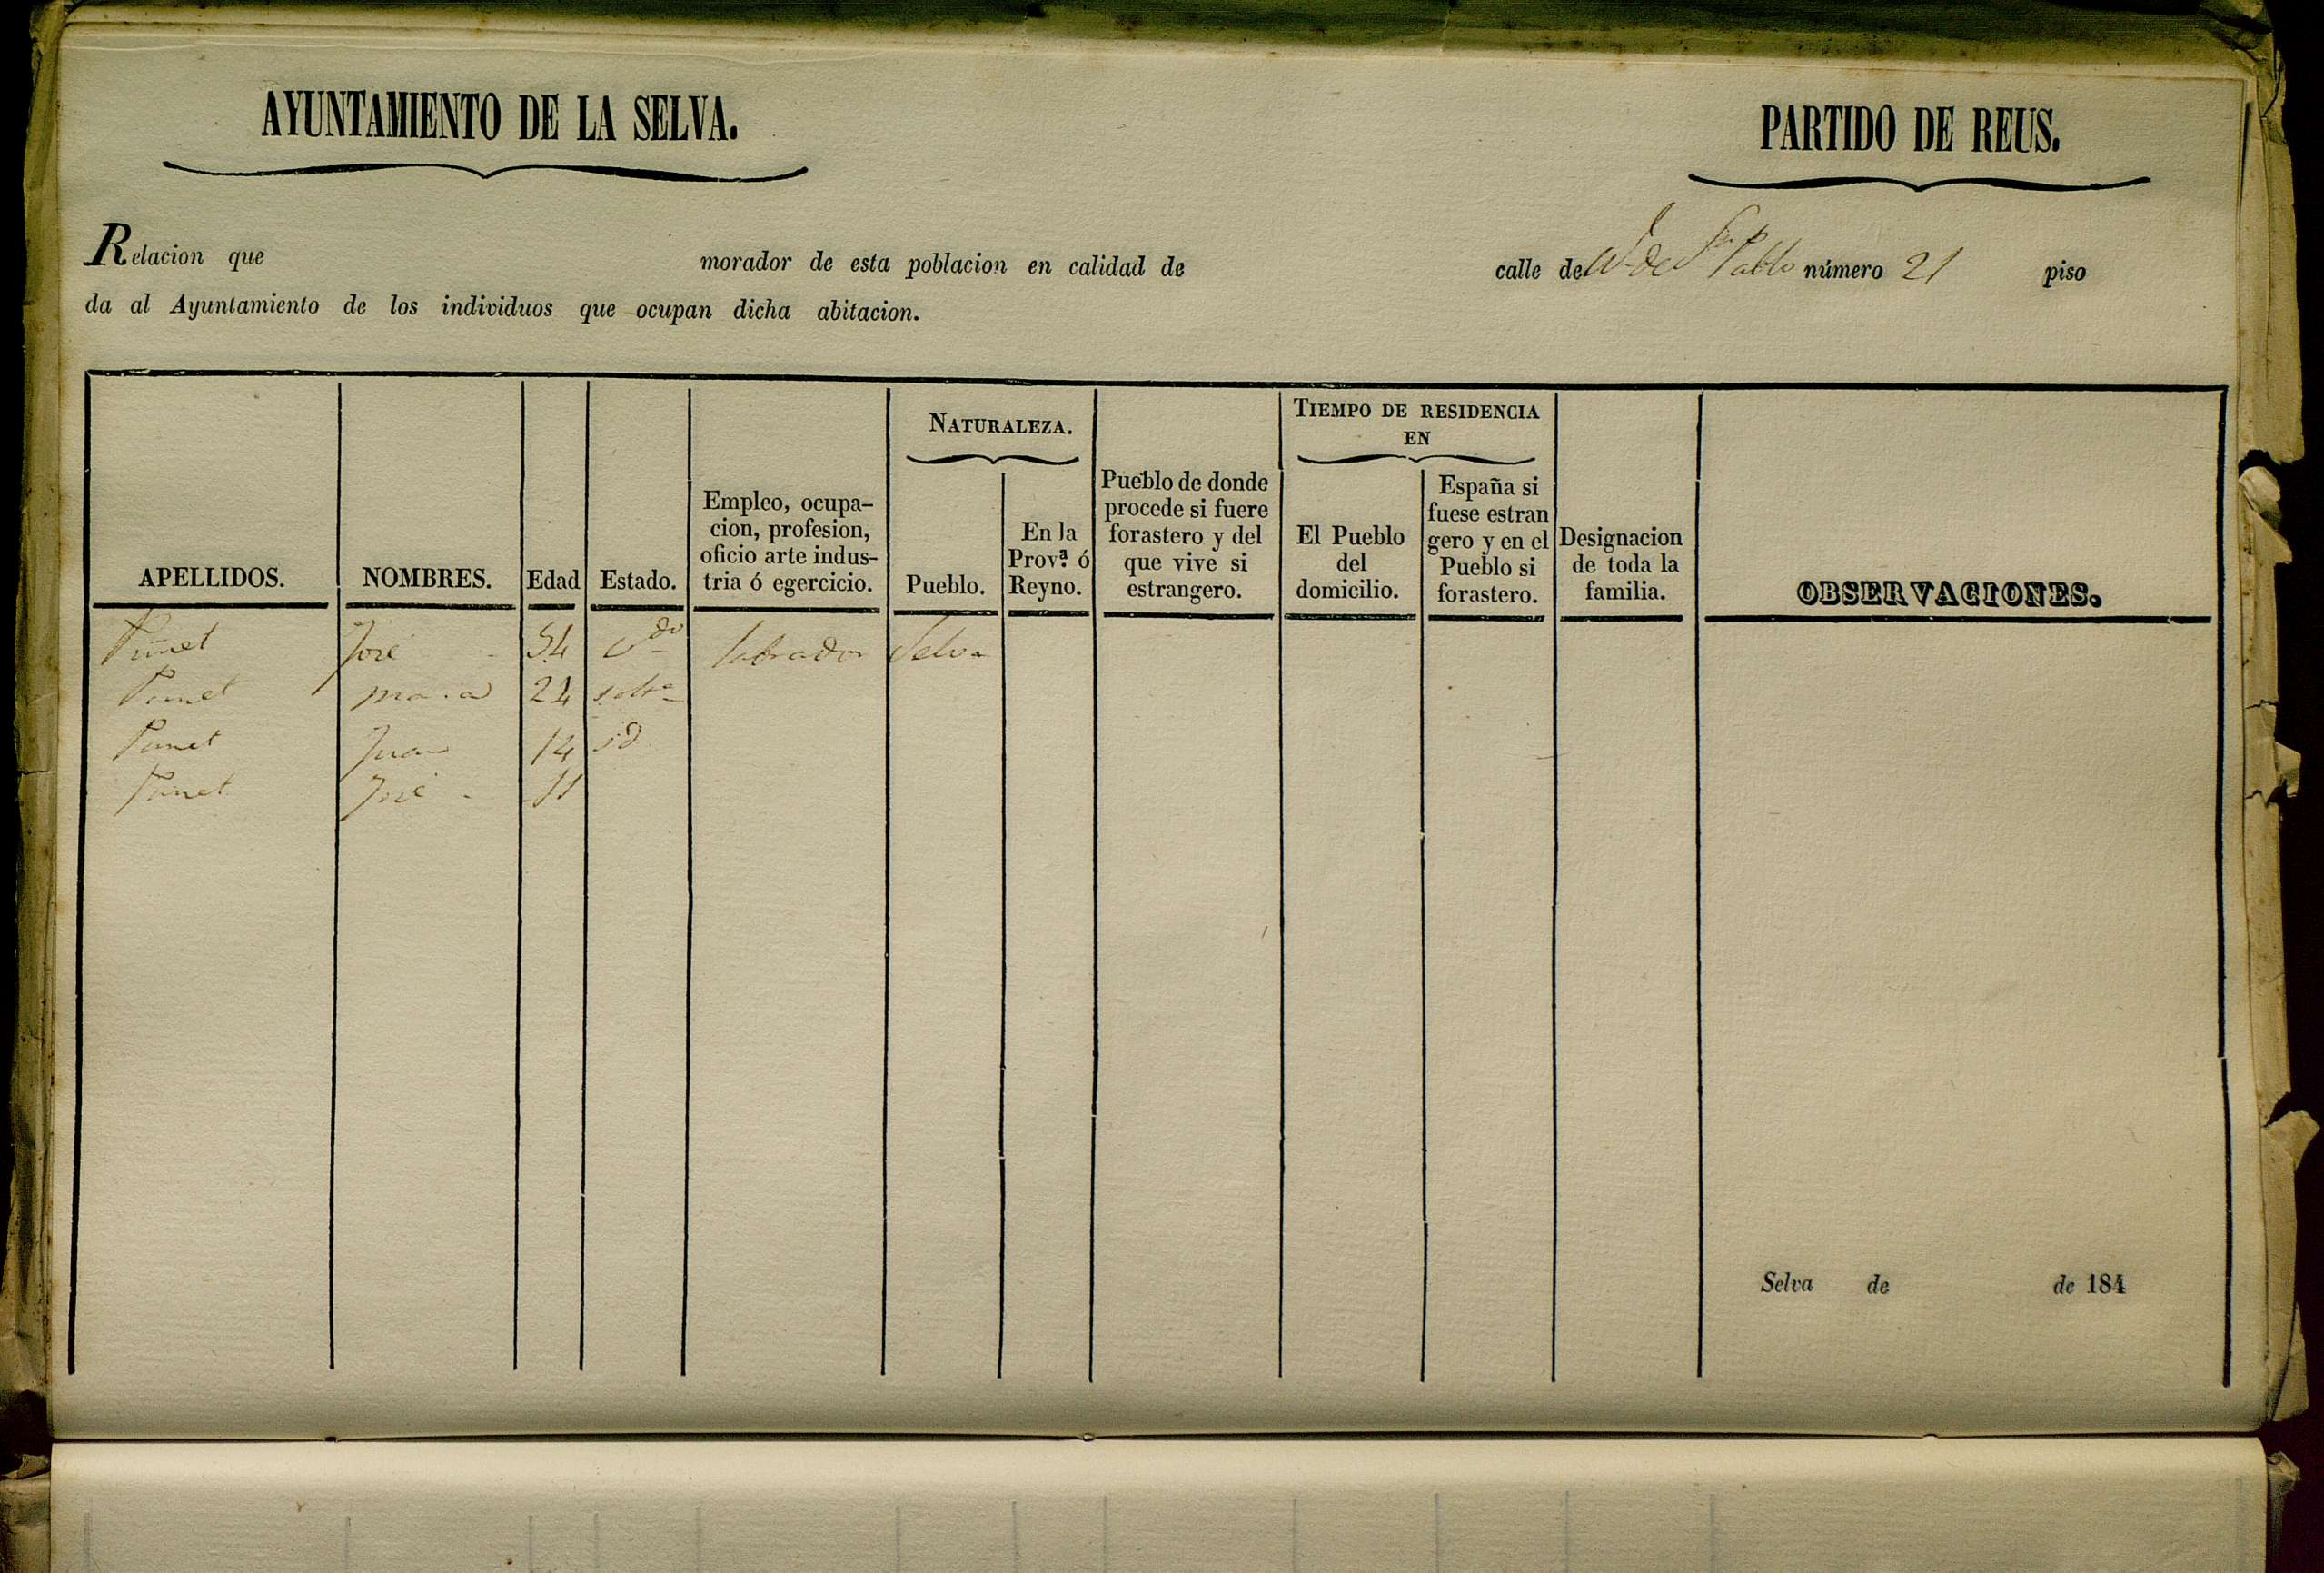 AYUNTAMIENTO DE LA SELVA.
PARTIDO DE REUS.
Relacion que morador de esta poblacion en calidad de calle de de Sn Pablo número 21 piso
da al Ayuntamiento de los individuos que ocupan dicha abitacion.
APELLIDOS.
NOMBRES.
Edad
Estado.
Empleo, ocupa-
cion, profesion,
oficio arte indus-
tria ó egercicio.
NATURALEZA.
Pueblo.
En la
Prov.ª ó
Reyno.
Pueblo de donde
procede si fuere
forastero y del
que vive si
estrangero.
TIEMPO DE RESIDENCIA
EN
El Pueblo
del
domicilio.
España si
fuese estran
gero y en el
Pueblo si
forastero.
Designacion
de toda la
familia.
OBSERVACIONES.
José 54 Vdo labrador Selva
maria 24 solta
Juan 14 id
José 11
Selva de de 184